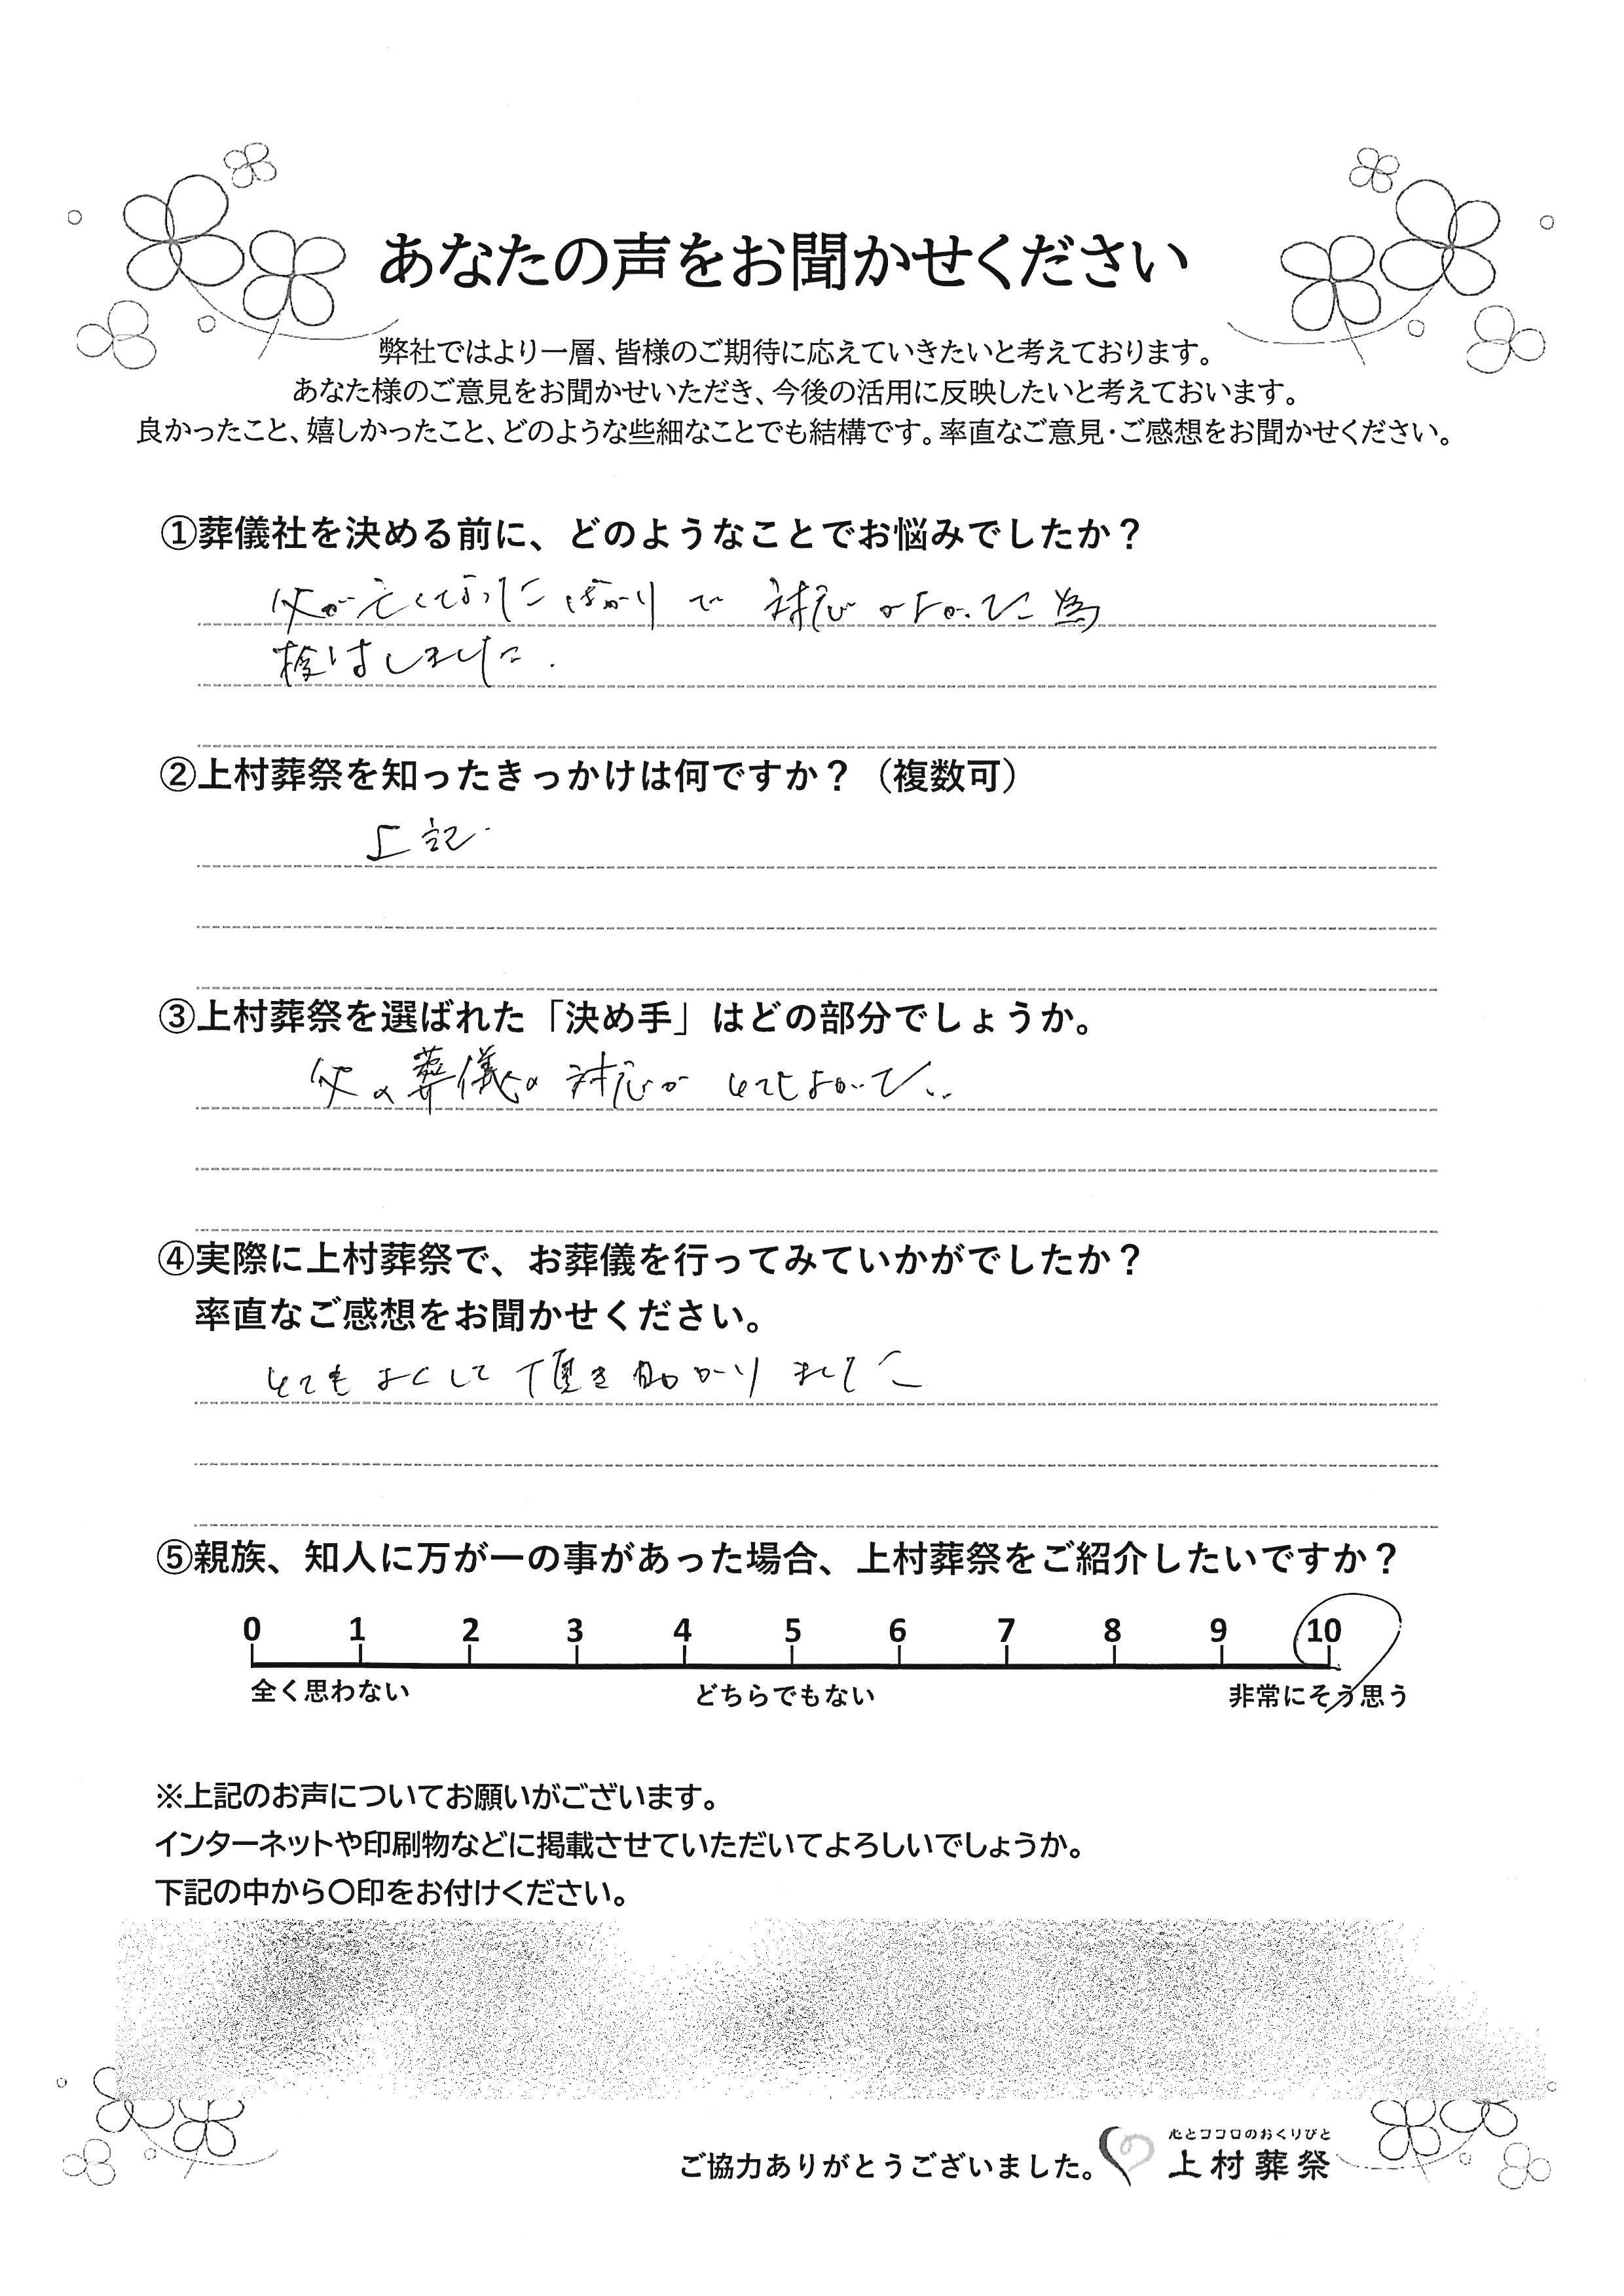 あなたの声をお聞かせください
弊社ではより一層、皆様のご期待に応えていきたいと考えております。
あなた様のご意見をお聞かせいただき、今後の活用に反映したいと考えておいます。
良かったこと、嬉しかったこと、どのような些細なことでも結構です。率直なご意見・ご感想をお聞かせください。
①葬儀社を決める前に、どのようなことでお悩みでしたか？
父が亡くなったばかりで 対応がよかった為
検討しました.
②上村葬祭を知ったきっかけは何ですか？（複数可）
上記
③上村葬祭を選ばれた「決め手」はどの部分でしょうか。
父の葬儀の対応がとてもよかって
④実際に上村葬祭で、お葬儀を行ってみていかがでしたか？
率直なご感想をお聞かせください。
とてもよくして頂き助かりました
⑤親族、知人に万が一の事があった場合、上村葬祭をご紹介したいですか？
0 1 2 3 4 5 6 7 8 9 10
全く思わない どちらでもない 非常にそう思う
※上記のお声についてお願いがございます。
インターネットや印刷物などに掲載させていただいてよろしいでしょうか。
下記の中から〇印をお付けください。
心とココロのおくりびと
ご協力ありがとうございました。 上村葬祭